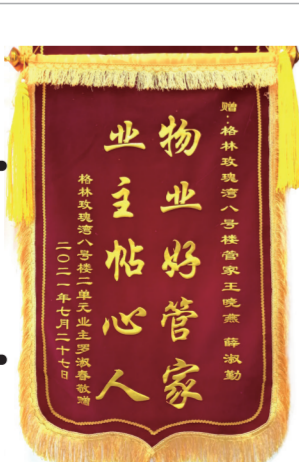 赠：格林玫瑰湾八号楼管家王晓燕 薛淑勤
物业好管家
业主帖心人
格林玫瑰湾八号楼二单元业主罗淑春敬赠
二〇二一年七月二十七日